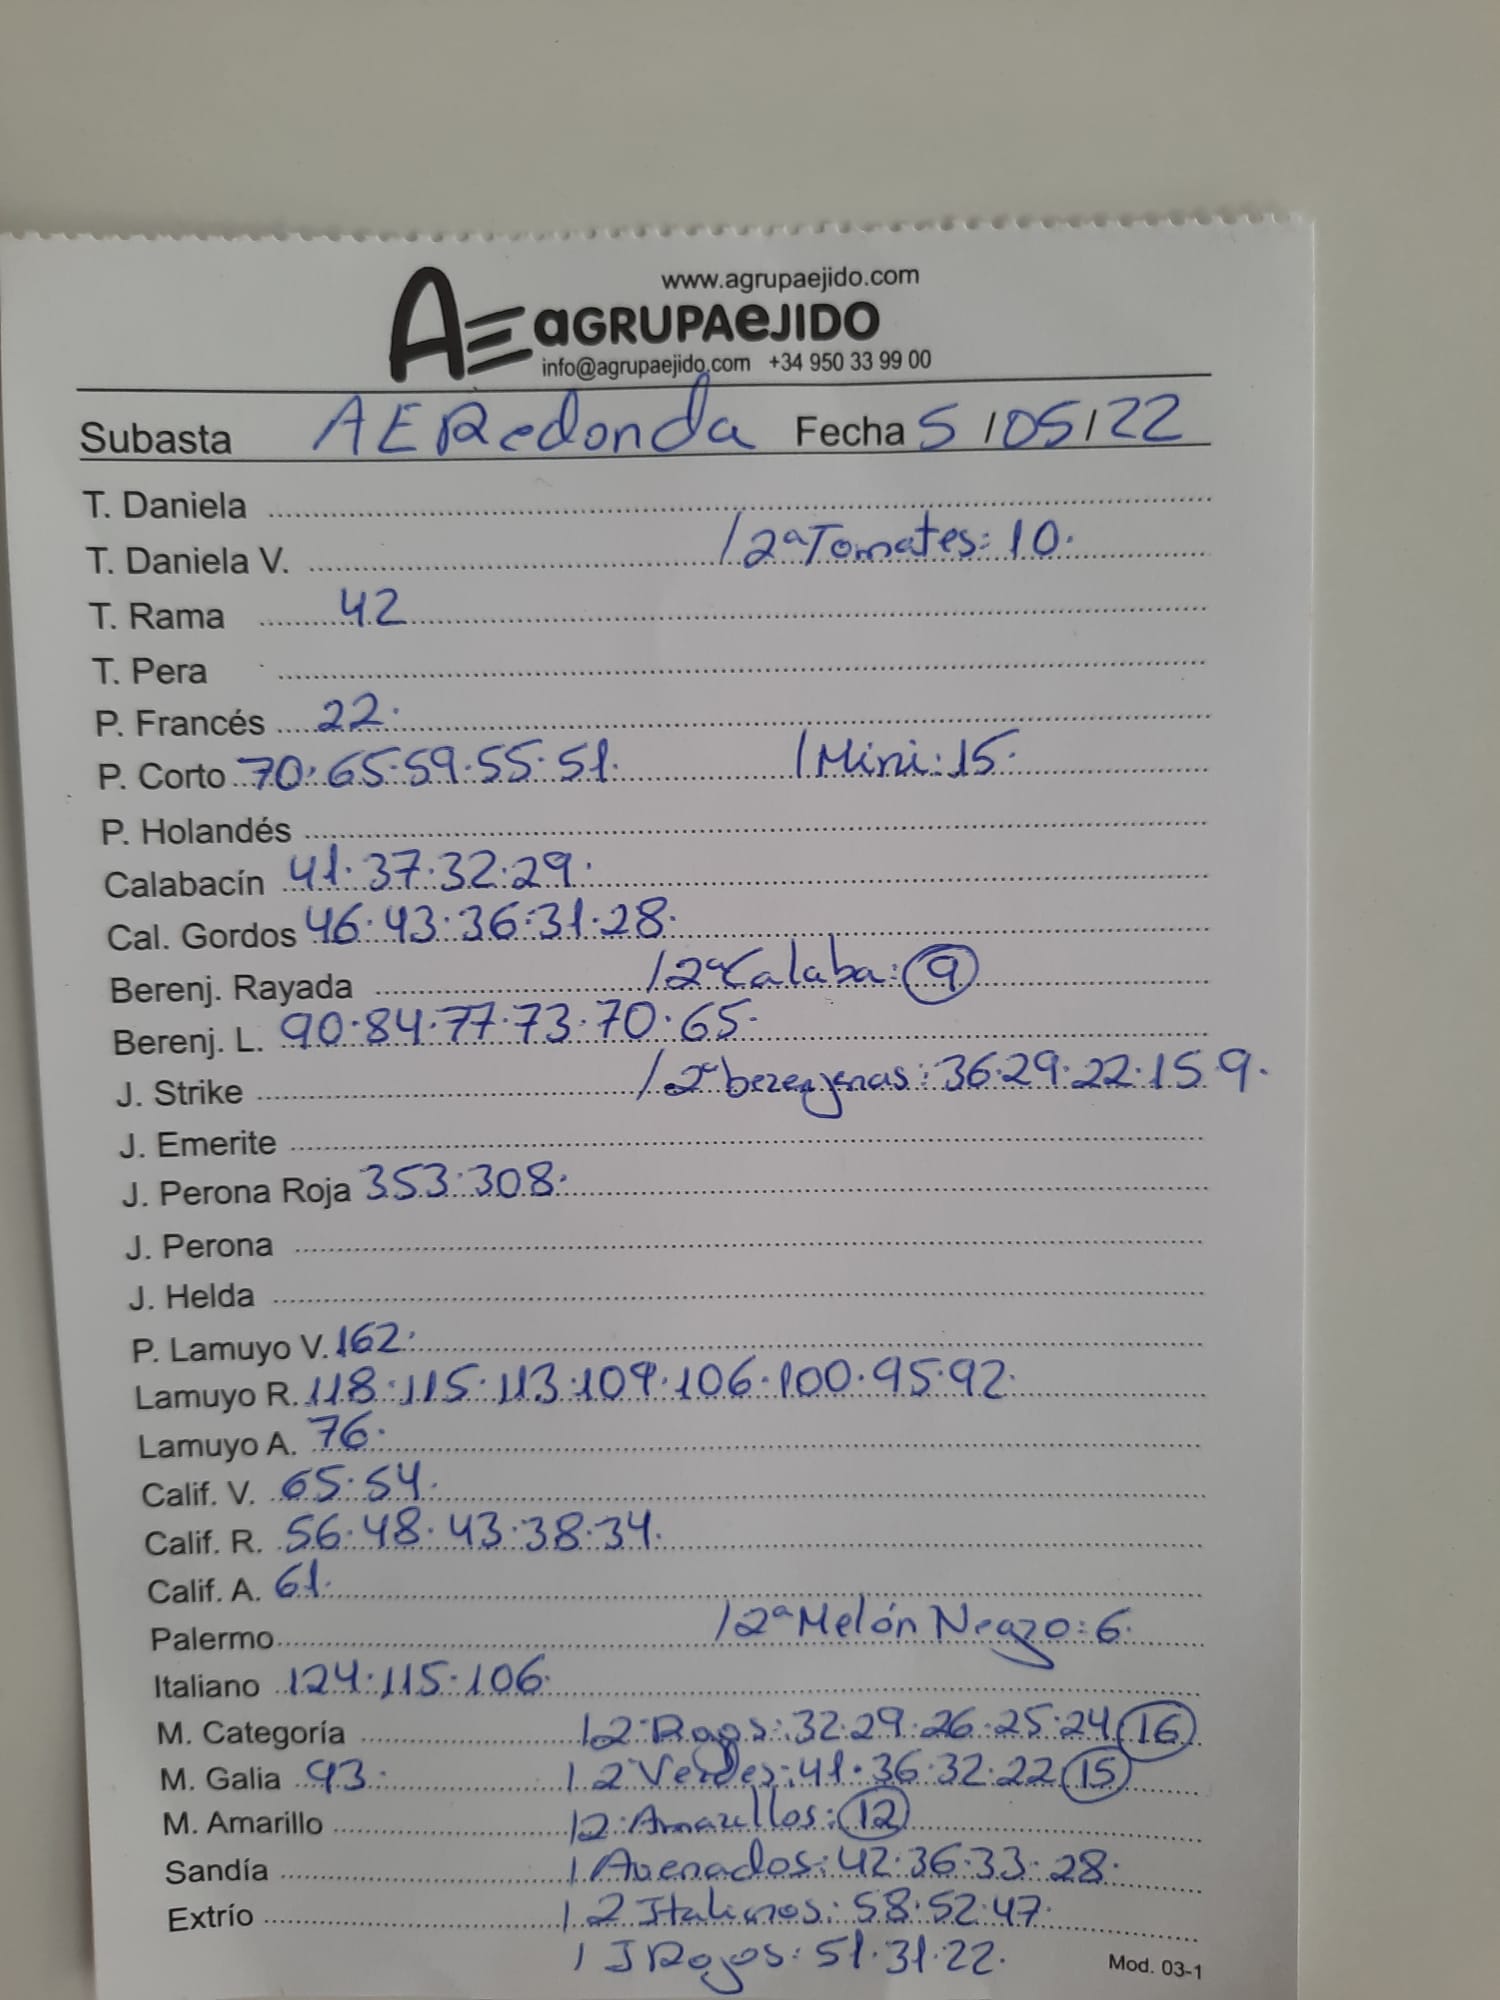 www.agrupaejido.com
AE aGRUPAeJIDO
info@agrupaejido.com +34 950 33 99 00
Subasta AERedonda Fecha 5/05/22
T. Daniela
T. Daniela V. /2ªTomates: 10.
T. Rama 42
T. Pera
P. Francés 22.
P. Corto 70.65.59.55.51. /Mini:15.
P. Holandés
Calabacín 41.37.32.29.
Cal. Gordos 46.43.36.31.28.
Berenj. Rayada /2ªCalaba: 9
Berenj. L. 90.84.77.73.70.65.
J. Strike /2ªberenjenas: 36.29.22.15.9.
J. Emerite
J. Perona Roja 353.308.
J. Perona
J. Helda
P. Lamuyo V. 162.
Lamuyo R. 118.115.113.109.106.100.95.92.
Lamuyo A. 76.
Calif. V. 65.54.
Calif. R. 56.48.43.38.34.
Calif. A. 61.
Palermo /2ªMelón Negro: 6.
Italiano 124.115.106.
M. Categoría /2ªRojos: 32.29.26.25.24 16
M. Galia 93. /2ªVerdes: 41.36.32.22 15
M. Amarillo /2ªAmarillos: 12
Sandía /Avenados: 42.36.33.28.
Extrío /2 Italianos: 58.52.47.
/J Rojos: 51.31.22.
Mod. 03-1